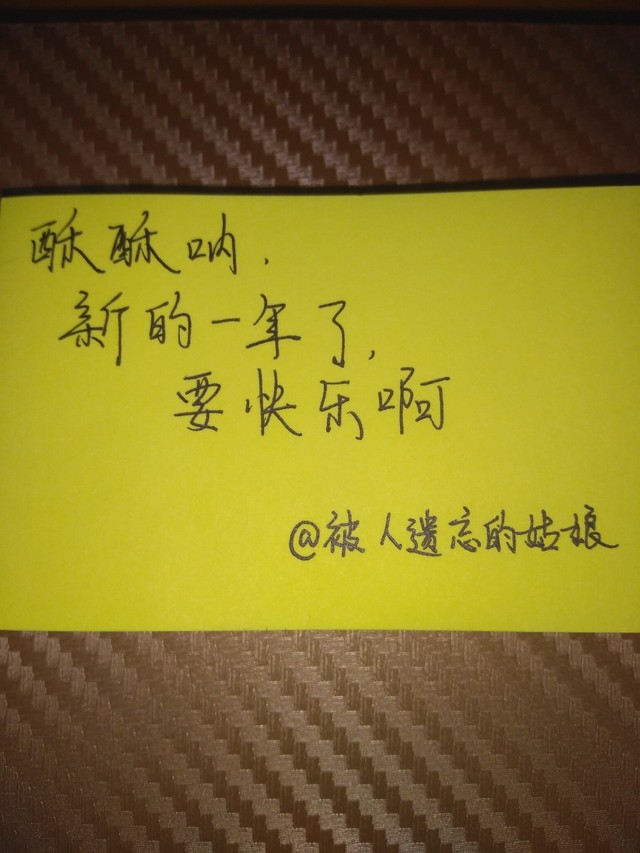 酥酥呐，
新的一年了，
要快乐啊
@被人遗忘的姑娘